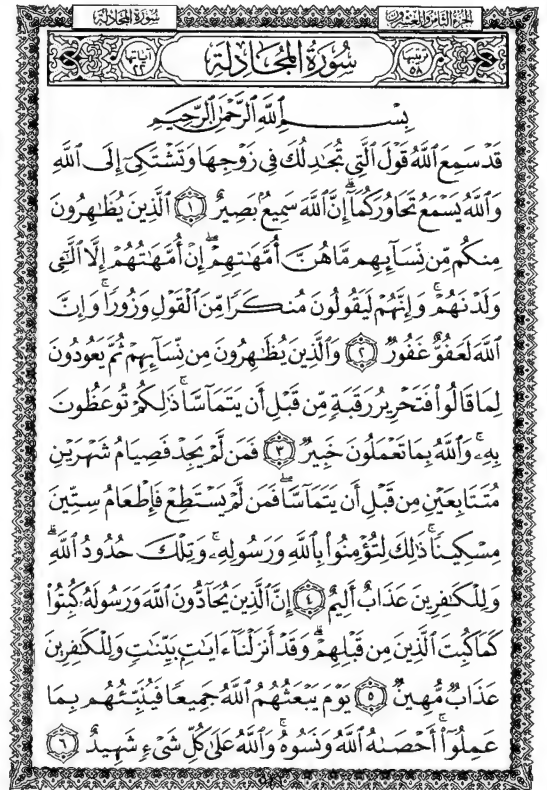 سُورَةُ المُجَادلَة
الجُزءُ الثَّامِنُ وَالعِشرُون
آيَاتُهَا ٢٢
سُورَةُ المُجَادلَة
تَرتيبُهَا ٥٨
بِسْمِ ٱللَّهِ ٱلرَّحْمَٰنِ ٱلرَّحِيمِ
قَدْ سَمِعَ ٱللَّهُ قَوْلَ ٱلَّتِي تُجَٰدِلُكَ فِي زَوْجِهَا وَتَشْتَكِيٓ إِلَى ٱللَّهِ
وَٱللَّهُ يَسْمَعُ تَحَاوُرَكُمَآۚ إِنَّ ٱللَّهَ سَمِيعُۢ بَصِيرٌ ١ ٱلَّذِينَ يُظَٰهِرُونَ
مِنكُم مِّن نِّسَآئِهِم مَّا هُنَّ أُمَّهَٰتِهِمْۖ إِنْ أُمَّهَٰتُهُمْ إِلَّا ٱلَّٰٓـِٔي
وَلَدْنَهُمْۚ وَإِنَّهُمْ لَيَقُولُونَ مُنكَرًا مِّنَ ٱلْقَوْلِ وَزُورًاۚ وَإِنَّ
ٱللَّهَ لَعَفُوٌّ غَفُورٌ ٢ وَٱلَّذِينَ يُظَٰهِرُونَ مِن نِّسَآئِهِمْ ثُمَّ يَعُودُونَ
لِمَا قَالُوا۟ فَتَحْرِيرُ رَقَبَةٍ مِّن قَبْلِ أَن يَتَمَآسَّاۚ ذَٰلِكُمْ تُوعَظُونَ
بِهِۦۚ وَٱللَّهُ بِمَا تَعْمَلُونَ خَبِيرٌ ٣ فَمَن لَّمْ يَجِدْ فَصِيَامُ شَهْرَيْنِ
مُتَتَابِعَيْنِ مِن قَبْلِ أَن يَتَمَآسَّاۖ فَمَن لَّمْ يَسْتَطِعْ فَإِطْعَامُ سِتِّينَ
مِسْكِينًاۚ ذَٰلِكَ لِتُؤْمِنُوا۟ بِٱللَّهِ وَرَسُولِهِۦۚ وَتِلْكَ حُدُودُ ٱللَّهِۗ
وَلِلْكَٰفِرِينَ عَذَابٌ أَلِيمٌ ٤ إِنَّ ٱلَّذِينَ يُحَآدُّونَ ٱللَّهَ وَرَسُولَهُۥ كُبِتُوا۟
كَمَا كُبِتَ ٱلَّذِينَ مِن قَبْلِهِمْۚ وَقَدْ أَنزَلْنَآ ءَايَٰتِۭ بَيِّنَٰتٍۚ وَلِلْكَٰفِرِينَ
عَذَابٌ مُّهِينٌ ٥ يَوْمَ يَبْعَثُهُمُ ٱللَّهُ جَمِيعًا فَيُنَبِّئُهُم بِمَا
عَمِلُوٓا۟ۚ أَحْصَىٰهُ ٱللَّهُ وَنَسُوهُۚ وَٱللَّهُ عَلَىٰ كُلِّ شَيْءٍ شَهِيدٌ ٦